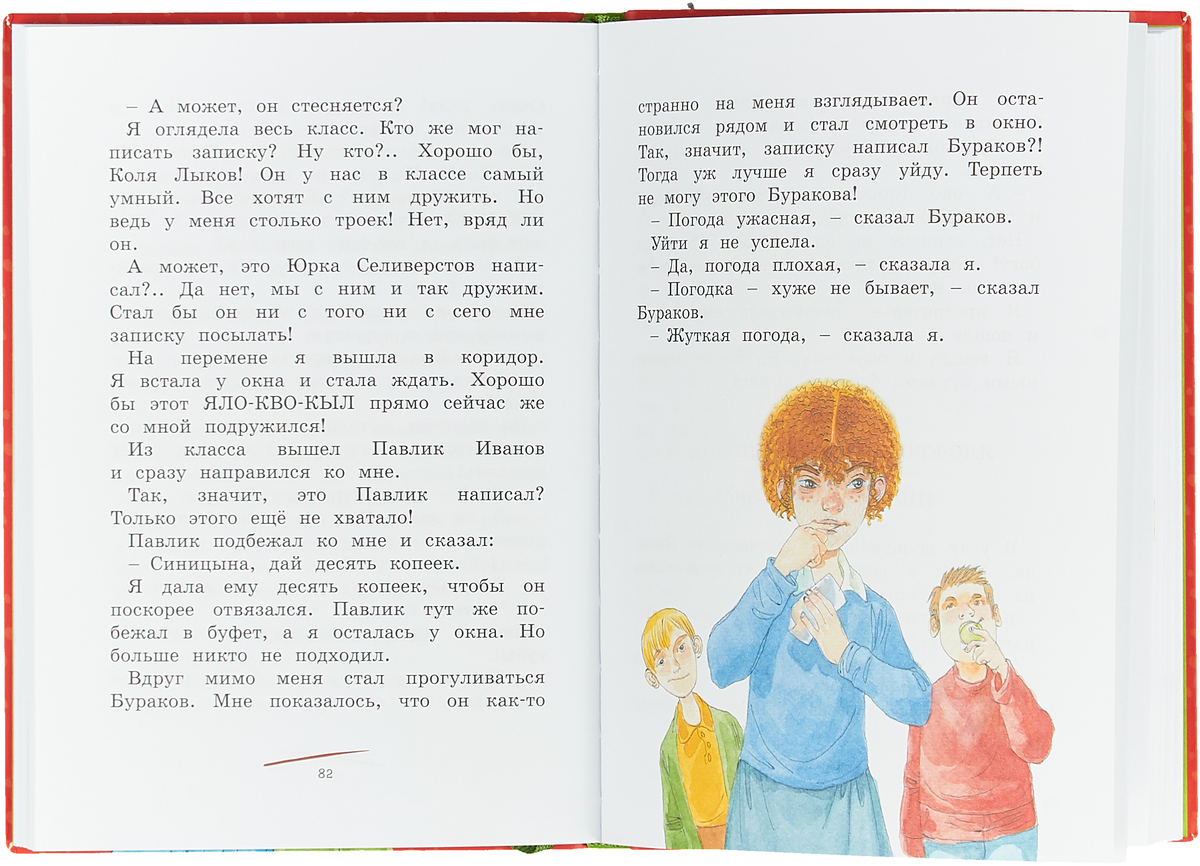 – А может, он стесняется?
Я оглядела весь класс. Кто же мог на-
писать записку? Ну кто?.. Хорошо бы,
Коля Лыков! Он у нас в классе самый
умный. Все хотят с ним дружить. Но
ведь у меня столько троек! Нет, вряд ли
он.
А может, это Юрка Селиверстов напи-
сал?.. Да нет, мы с ним и так дружим.
Стал бы он ни с того ни с сего мне
записку посылать!
На перемене я вышла в коридор.
Я встала у окна и стала ждать. Хорошо
бы этот ЯЛО-КВО-КЫЛ прямо сейчас же
со мной подружился!
Из класса вышел Павлик Иванов
и сразу направился ко мне.
Так, значит, это Павлик написал?
Только этого ещё не хватало!
Павлик подбежал ко мне и сказал:
– Синицына, дай десять копеек.
Я дала ему десять копеек, чтобы он
поскорее отвязался. Павлик тут же по-
бежал в буфет, а я осталась у окна. Но
больше никто не подходил.
Вдруг мимо меня стал прогуливаться
Бураков. Мне показалось, что он как-то
82
странно на меня взглядывает. Он оста-
новился рядом и стал смотреть в окно.
Так, значит, записку написал Бураков?!
Тогда уж лучше я сразу уйду. Терпеть
не могу этого Буракова!
– Погода ужасная, – сказал Бураков.
Уйти я не успела.
– Да, погода плохая, – сказала я.
– Погодка – хуже не бывает, – сказал
Бураков.
– Жуткая погода, – сказала я.